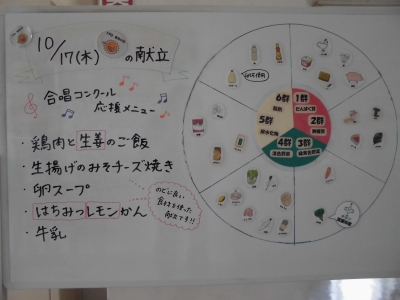 10/17(木) の献立
合唱コンクール
応援メニュー
・鶏肉と生姜のご飯
・生揚げのみそチーズ焼き
・卵スープ
・はちみつレモンかん
・牛乳
のどに良い
食材を使った
献立です!!
6群
1群
たんぱく質
2群
3群
4群
5群
炭水化物